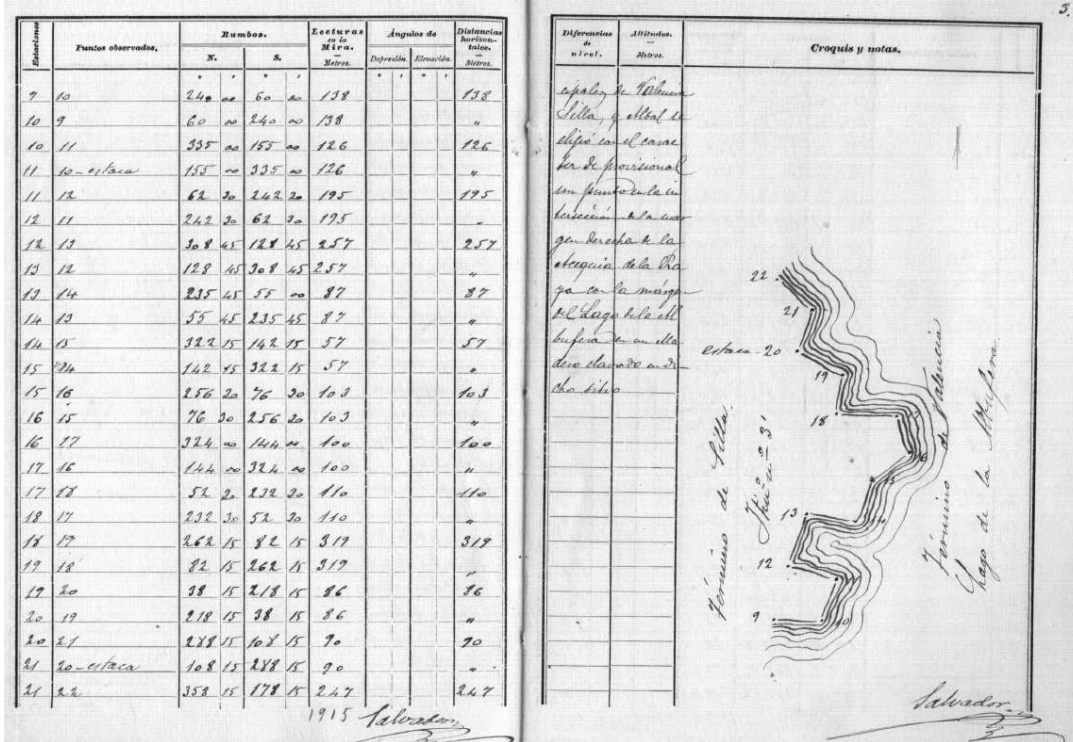 3.
Estaciones Puntos observados. Rumbos. Lecturas en la Mira. Ángulos de Distancias horizontales.
N. S. Metros. Depresión. Elevación. Metros.
9 10 240 00 60 00 138 138
10 9 60 00 240 00 138 "
10 11 335 00 155 00 126 126
11 10-estaca 155 00 335 00 126 "
11 12 62 30 242 30 195 195
12 11 242 30 62 30 195 "
12 13 308 45 128 45 257 257
13 12 128 45 308 45 257 "
13 14 235 45 55 00 87 87
14 13 55 45 235 45 87 "
14 15 322 15 142 15 57 57
15 14 142 15 322 15 57 "
15 16 256 30 76 30 103 103
16 15 76 30 256 30 103 "
16 17 324 00 144 00 100 100
17 16 144 00 324 00 100 "
17 18 52 30 232 30 110 110
18 17 232 30 52 30 110 "
18 19 262 15 82 15 319 319
19 18 82 15 262 15 319 "
19 20 38 15 218 15 86 86
20 19 218 15 38 15 86 "
20 21 288 15 108 15 90 90
21 20-estaca 108 15 288 15 90 "
21 22 358 15 178 15 247 247
1915 Salvador
Diferencias de nivel. Altitudes. Metros. Croquis y notas.
cipales de Valencia
Silla, y Albal se
eligió con el carac
ter de provisional
un punto en la in
tersección de la mar
gen derecha de la
Acequia de la Ra
ya con la márgen
del Lago de la Al
bufera en un Ma
dero clavado en di
cho sitio
22
21
estaca-20
19
18
17
16
15
14
13
12
11
10
9
Término de Silla.
Término de Valencia
Lago de la Albufera
Salvador